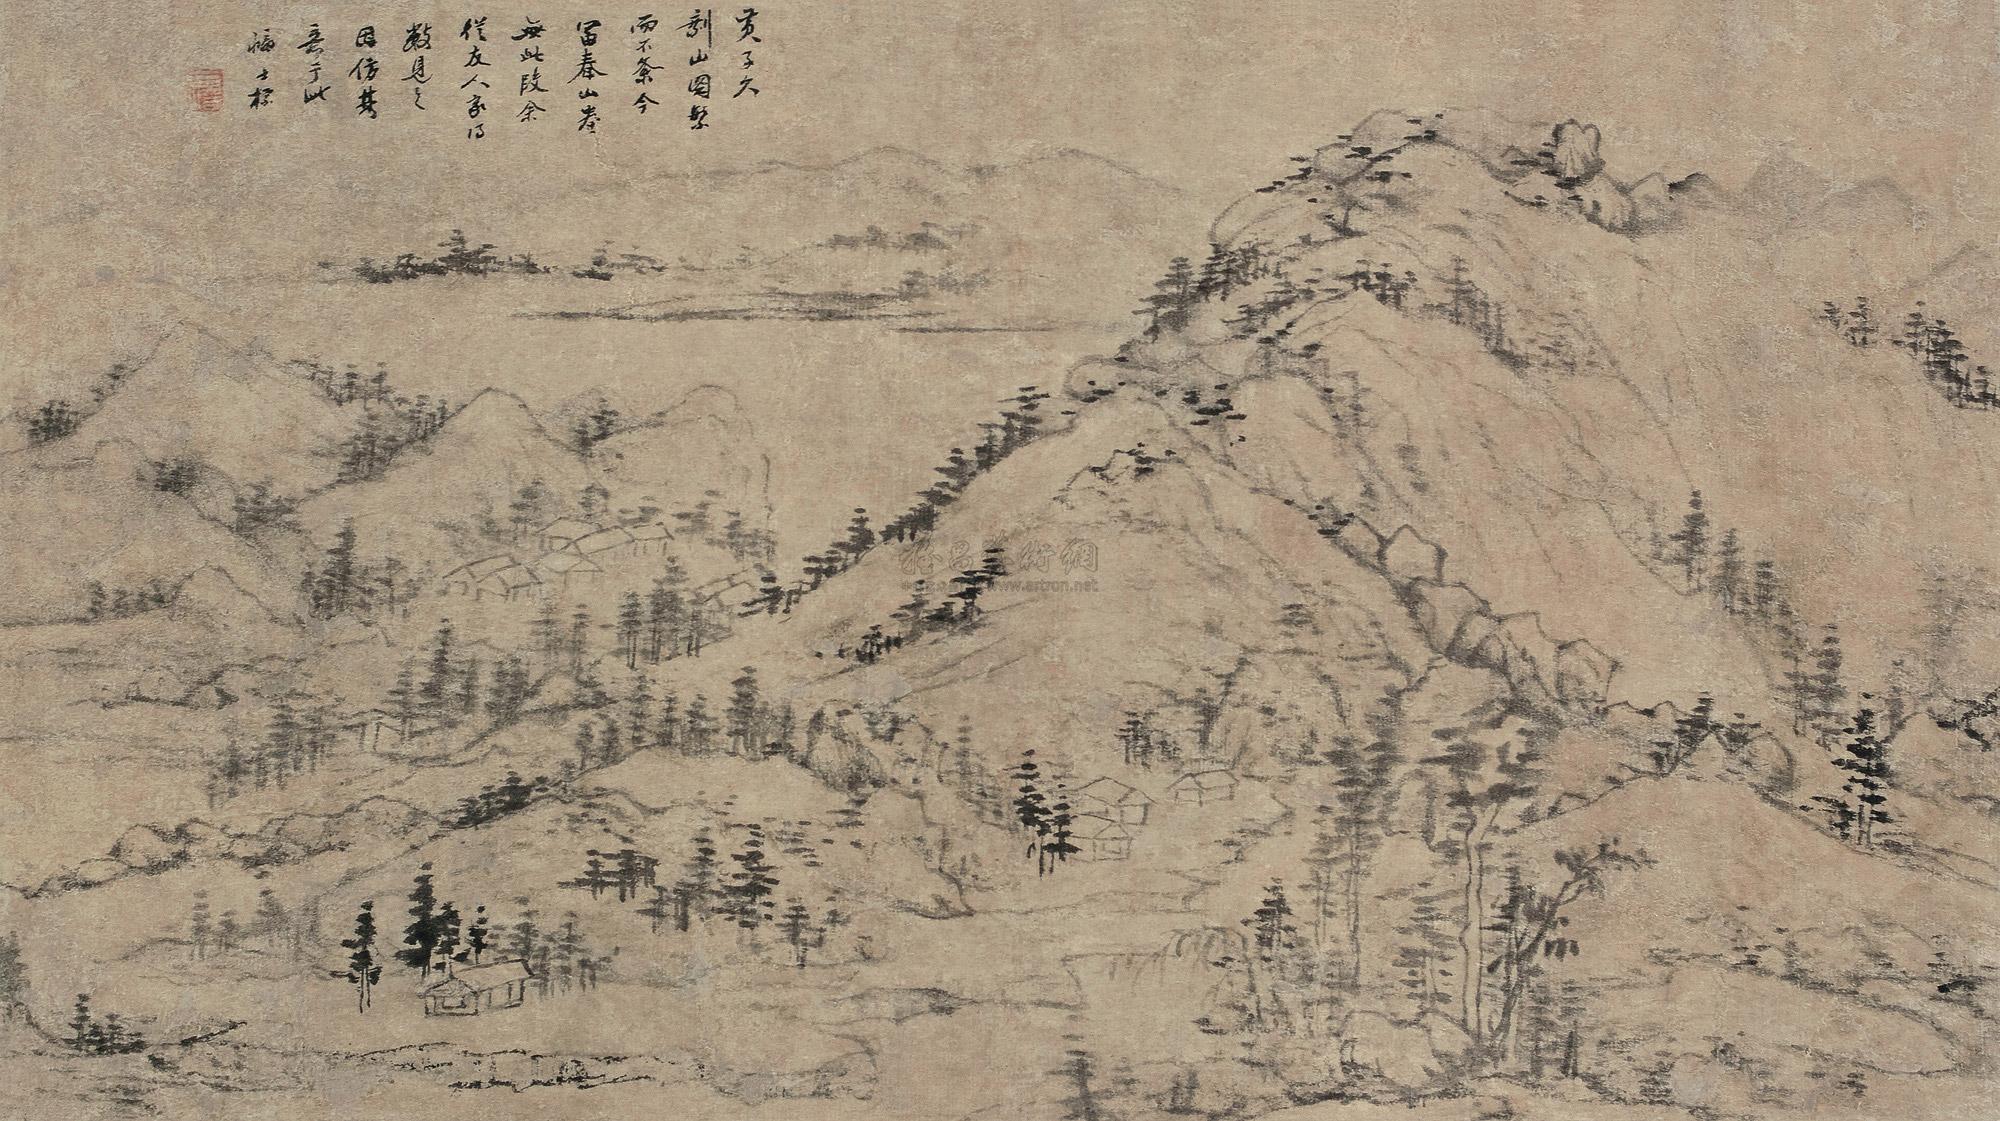 黄子久
剩山图繁
而不杂今
富春山卷
無此段余
從友人家得
数見之
因仿其
意于此
士标
雅昌美術網
www.artron.net